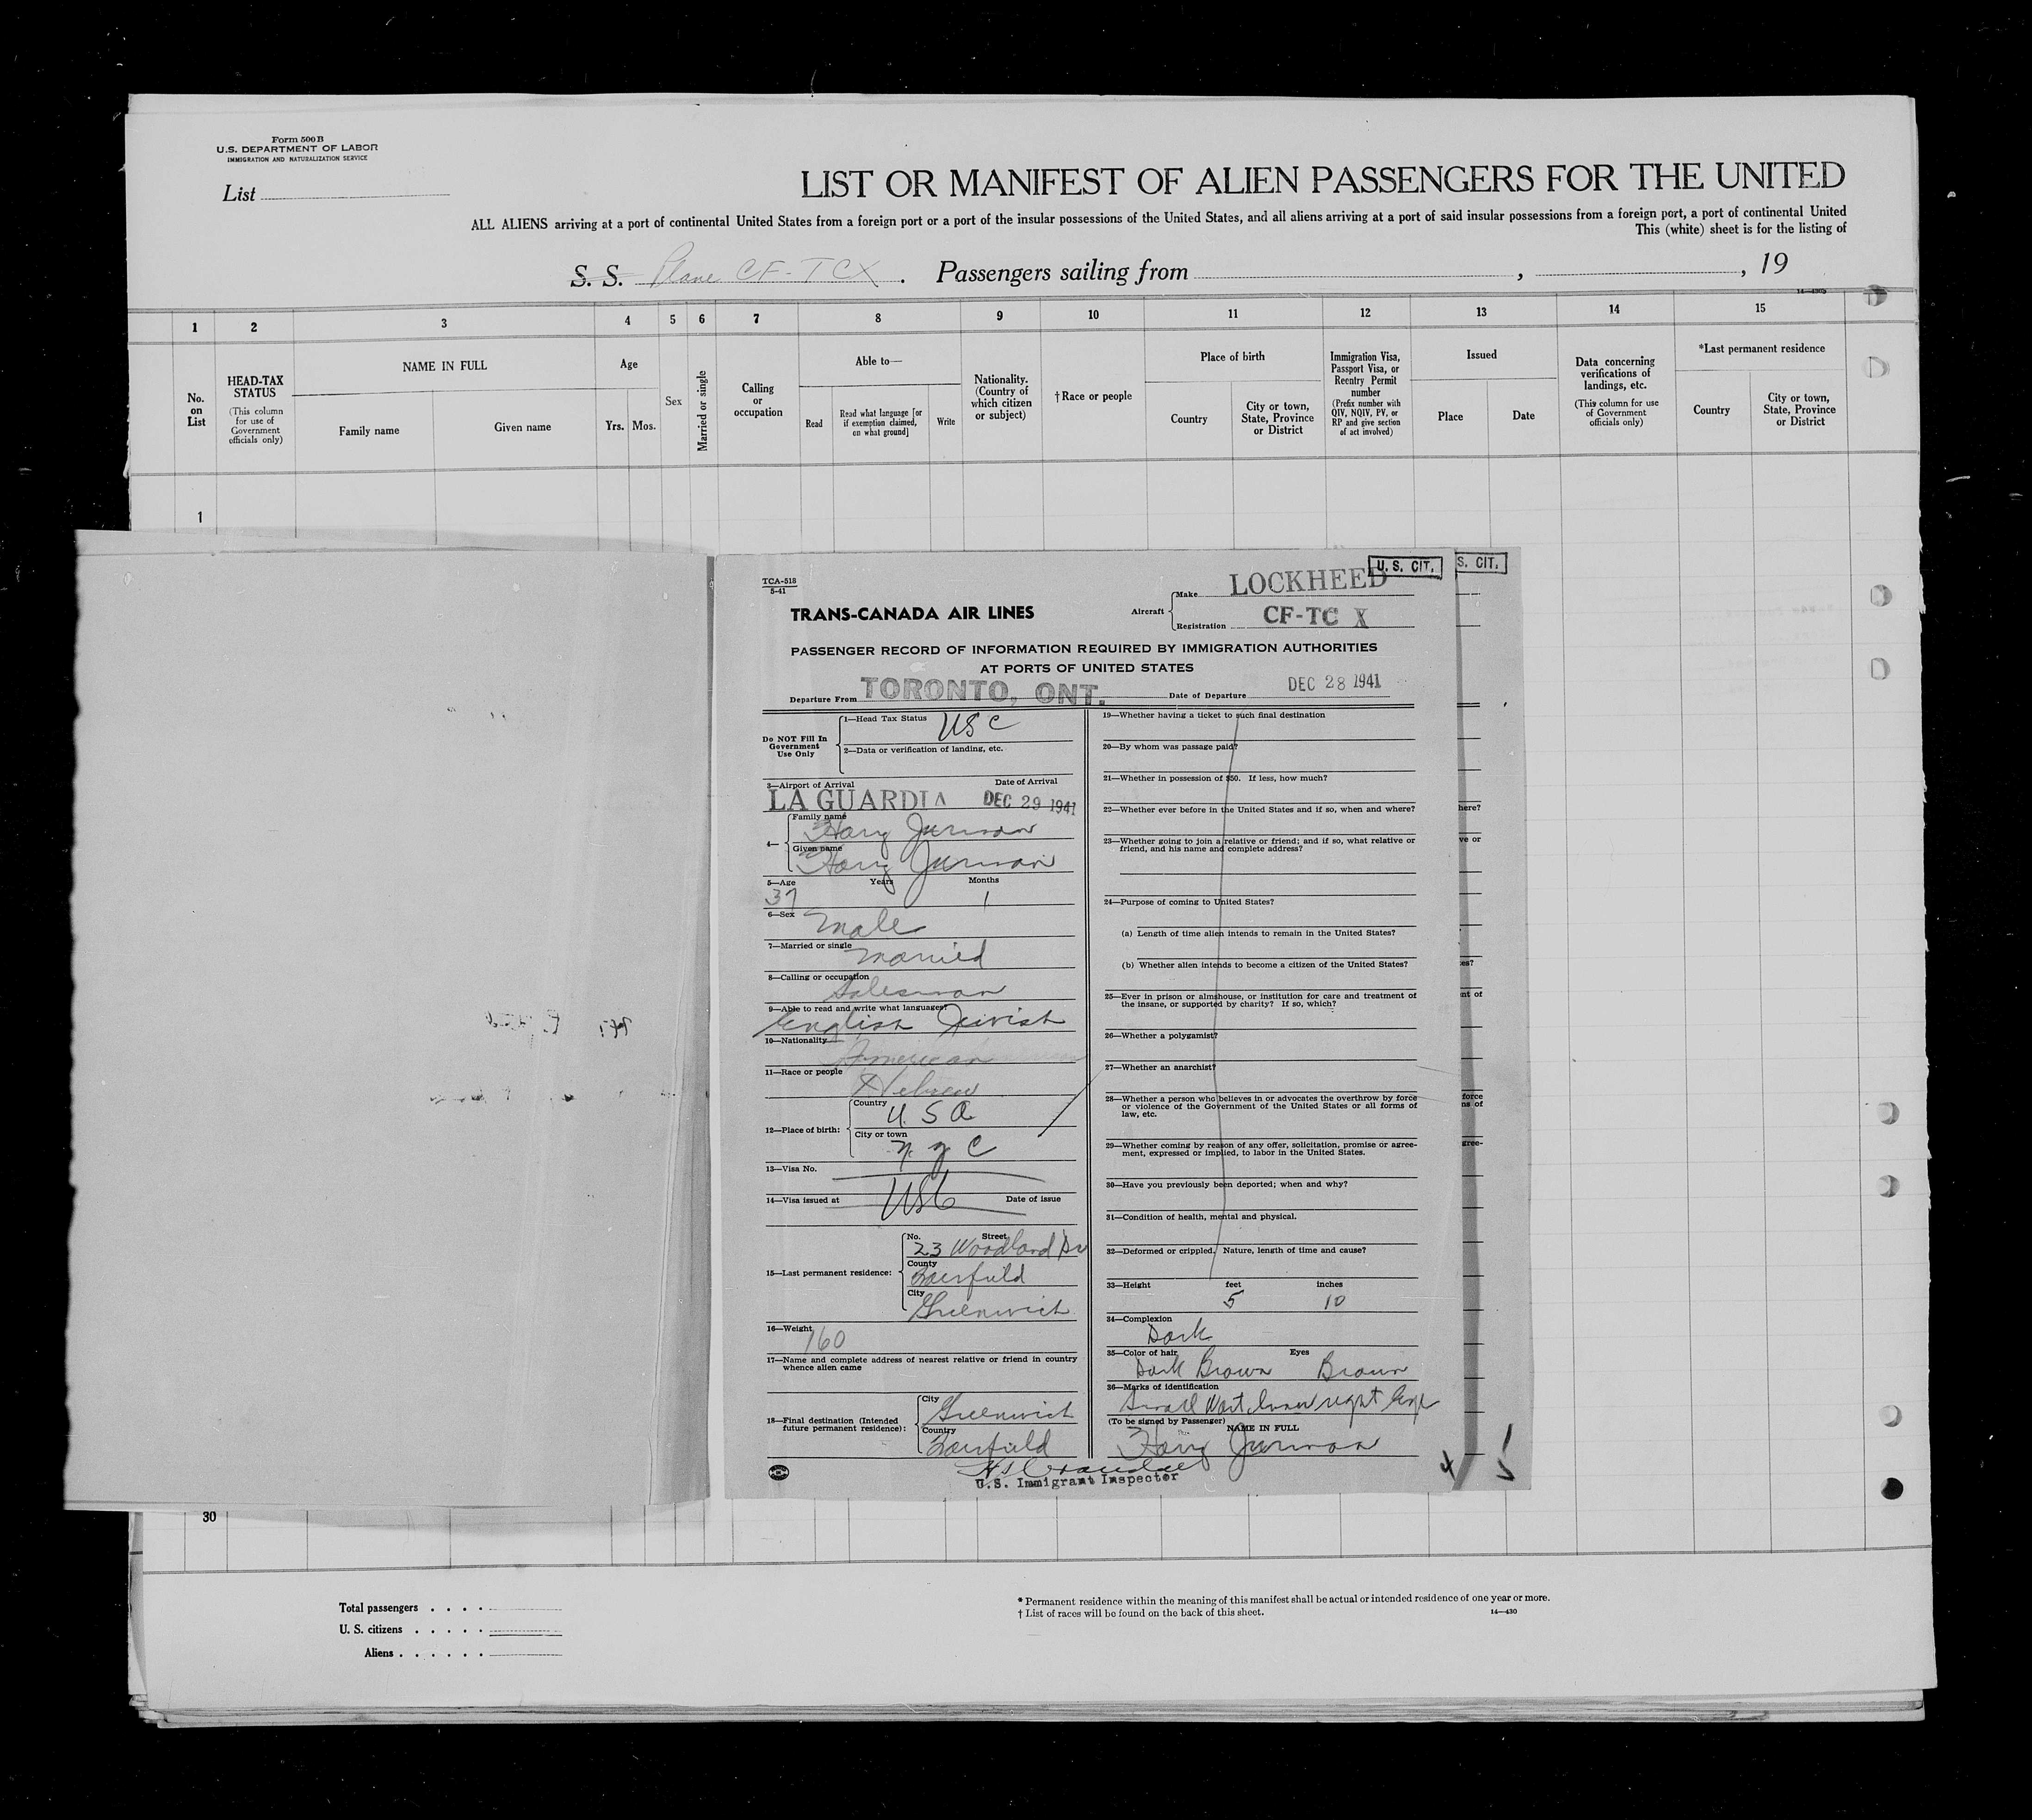 Form 500 B
U.S. DEPARTMENT OF LABOR
IMMIGRATION AND NATURALIZATION SERVICE
List
LIST OR MANIFEST OF ALIEN PASSENGERS FOR THE UNITED
ALL ALIENS arriving at a port of continental United States from a foreign port or a port of the insular possessions of the United States, and all aliens arriving at a port of said insular possessions from a foreign port, a port of continental United
This (white) sheet is for the listing of
S. S. Plane CF-TCX. Passengers sailing from , , 19
1 2 3 4 5 6 7 8 9 10 11 12 13 14 15
No. on List
HEAD-TAX STATUS
(This column for use of Government officials only)
NAME IN FULL
Family name Given name
Age
Yrs. Mos.
Sex
Married or single
Calling or occupation
Able to—
Read
Read what language [or if exemption claimed, on what ground]
Write
Nationality. (Country of which citizen or subject)
†Race or people
Place of birth
Country
City or town, State, Province or District
Immigration Visa, Passport Visa, or Reentry Permit number
(Prefix number with QIV, NQIV, PV, or RP and give section of act involved)
Issued
Place Date
Data concerning verifications of landings, etc.
(This column for use of Government officials only)
*Last permanent residence
Country
City or town, State, Province or District
1
TCA-518
5-41
TRANS-CANADA AIR LINES
Aircraft
Make LOCKHEED
Registration CF-TC X
U. S. CIT.
S. CIT.
PASSENGER RECORD OF INFORMATION REQUIRED BY IMMIGRATION AUTHORITIES
AT PORTS OF UNITED STATES
Departure From TORONTO, ONT. Date of Departure DEC 28 1941
Do NOT Fill In Government Use Only
1—Head Tax Status USC
2—Data or verification of landing, etc.
3—Airport of Arrival Date of Arrival
LA GUARDIA DEC 29 1941
4— Family name Harry Jurman
Given name Harry Jurman
5—Age Years Months
37 1
6—Sex Male
7—Married or single Married
8—Calling or occupation Salesman
9—Able to read and write what languages?
English Jewish
10—Nationality American
11—Race or people Hebrew
12—Place of birth: Country U. S. A
City or town N. Y. C
13—Visa No.
14—Visa issued at USC Date of issue
15—Last permanent residence:
No. Street
23 Woodland Dr
County
Fairfield
City
Greenwich
16—Weight 160
17—Name and complete address of nearest relative or friend in country
whence alien came
18—Final destination (Intended future permanent residence):
City
Greenwich
Country
Fairfield
19—Whether having a ticket to such final destination
20—By whom was passage paid?
21—Whether in possession of $50. If less, how much?
22—Whether ever before in the United States and if so, when and where?
23—Whether going to join a relative or friend; and if so, what relative or
friend, and his name and complete address?
24—Purpose of coming to United States?
(a) Length of time alien intends to remain in the United States?
(b) Whether alien intends to become a citizen of the United States?
25—Ever in prison or almshouse, or institution for care and treatment of
the insane, or supported by charity? If so, which?
26—Whether a polygamist?
27—Whether an anarchist?
28—Whether a person who believes in or advocates the overthrow by force
or violence of the Government of the United States or all forms of
law, etc.
29—Whether coming by reason of any offer, solicitation, promise or agree-
ment, expressed or implied, to labor in the United States.
30—Have you previously been deported; when and why?
31—Condition of health, mental and physical.
32—Deformed or crippled. Nature, length of time and cause?
33—Height feet inches
5 10
34—Complexion
Dark
35—Color of hair Eyes
Dark Brown Brown
36—Marks of identification
Small Wart Inner right
(To be signed by Passenger) NAME IN FULL
Harry Jurman
U.S. Immigrant Inspector
here?
ve or
es?
nt of
force
ns of
gree-
30
Total passengers
U. S. citizens
Aliens
* Permanent residence within the meaning of this manifest shall be actual or intended residence of one year or more.
† List of races will be found on the back of this sheet.
14—430